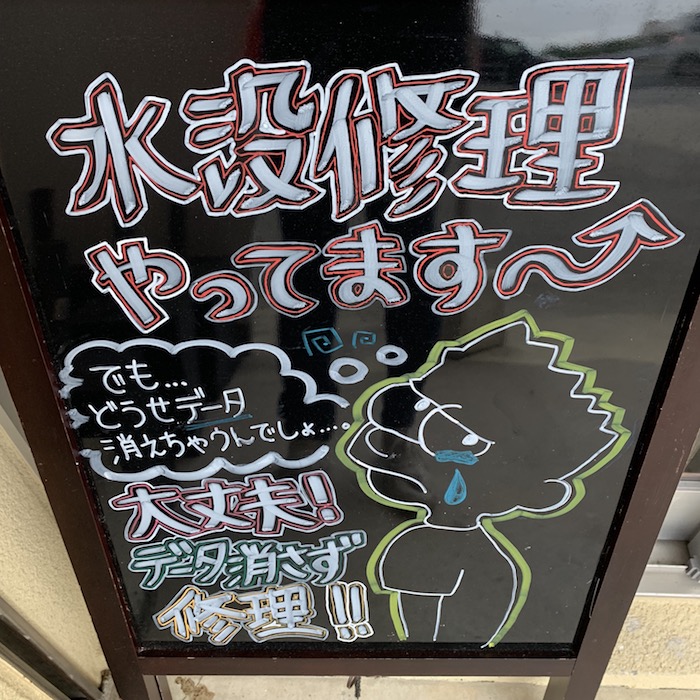 水没修理
やってます〜
でも...
どうせデータ
消えちゃうんでしょ....。
大丈夫!
データ消さず
修理!!